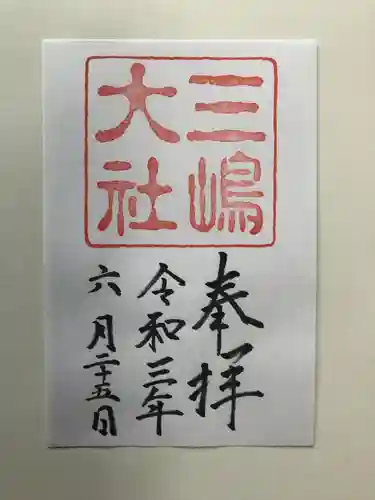 三嶋
大社
奉拝
令和三年
六月二十五日